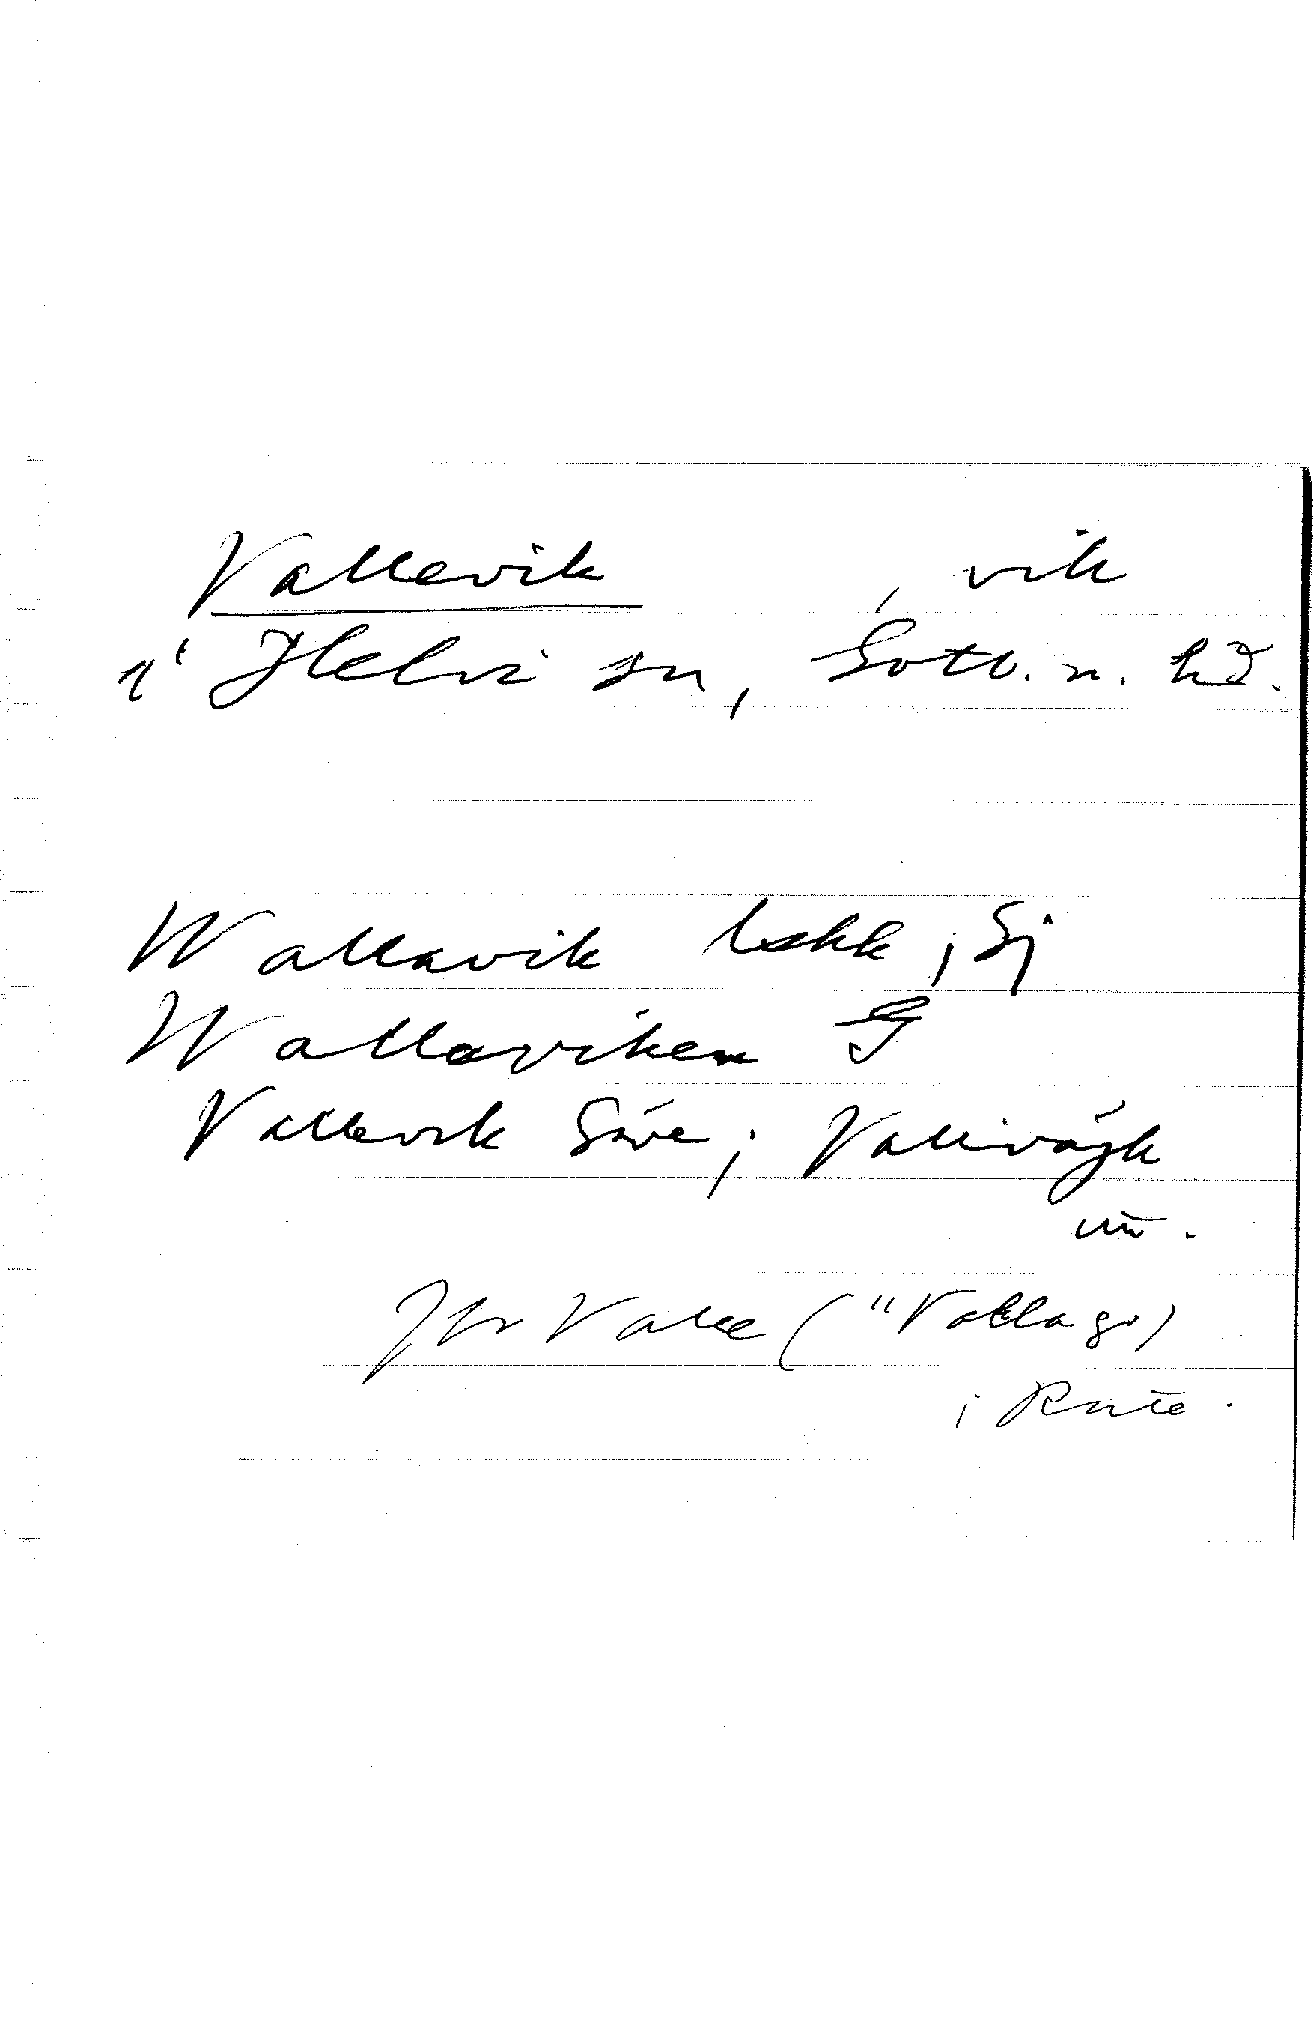 Vallevik , vik
i Hellvi sn, Gotl. n. hd.
Wallavik lskk, Sj
Wallaviken G
Vallevik Säve; Vallivåjk
utt.
Jfr Valle ("Vallagr)
i Rute.